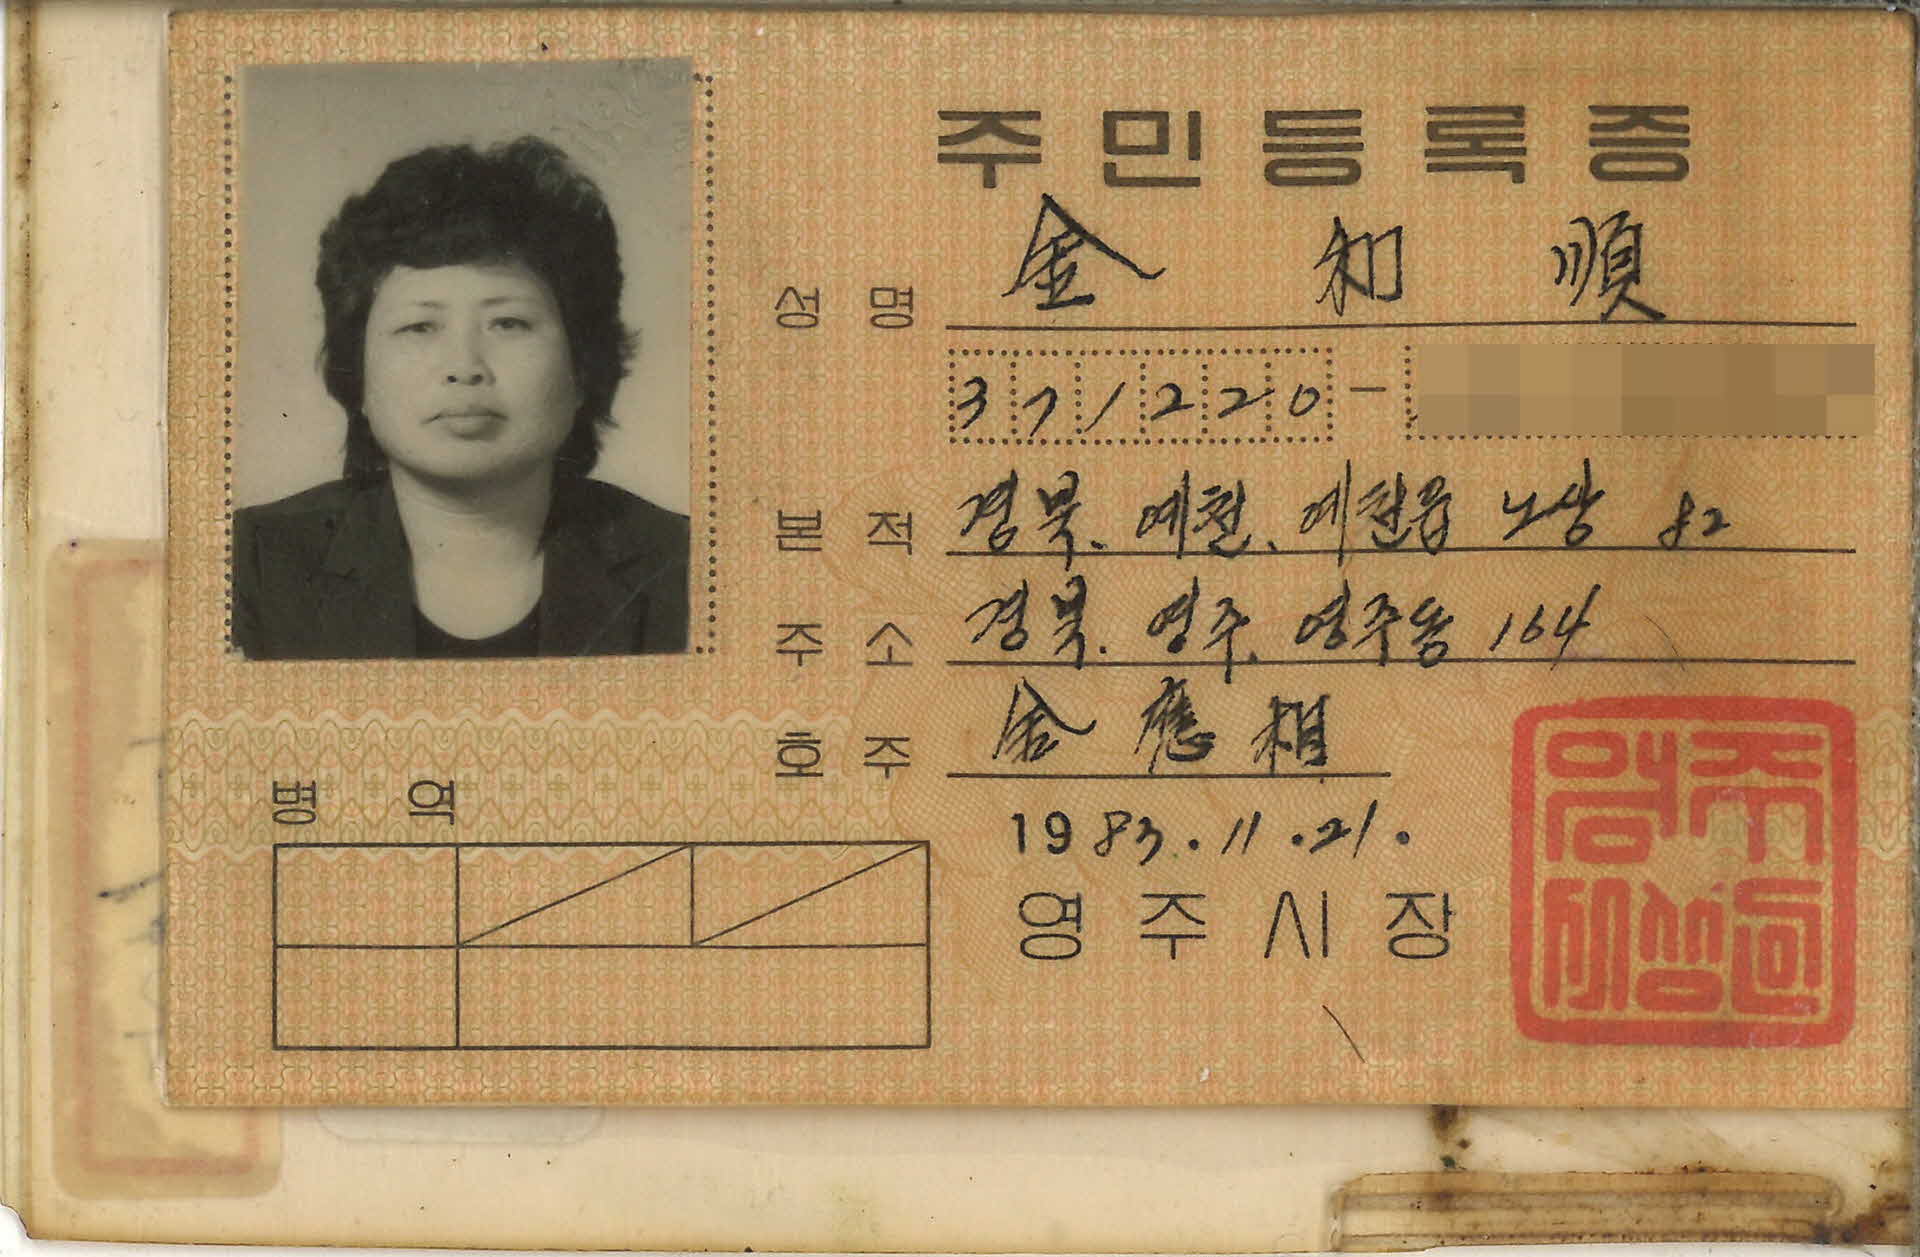 주민등록증
성명 金和順
371220-
본적 경북. 예천. 예천읍 노상 82
주소 경북. 영주. 영주동 164
호주 金應相
병역
1983.11.21.
영주시장